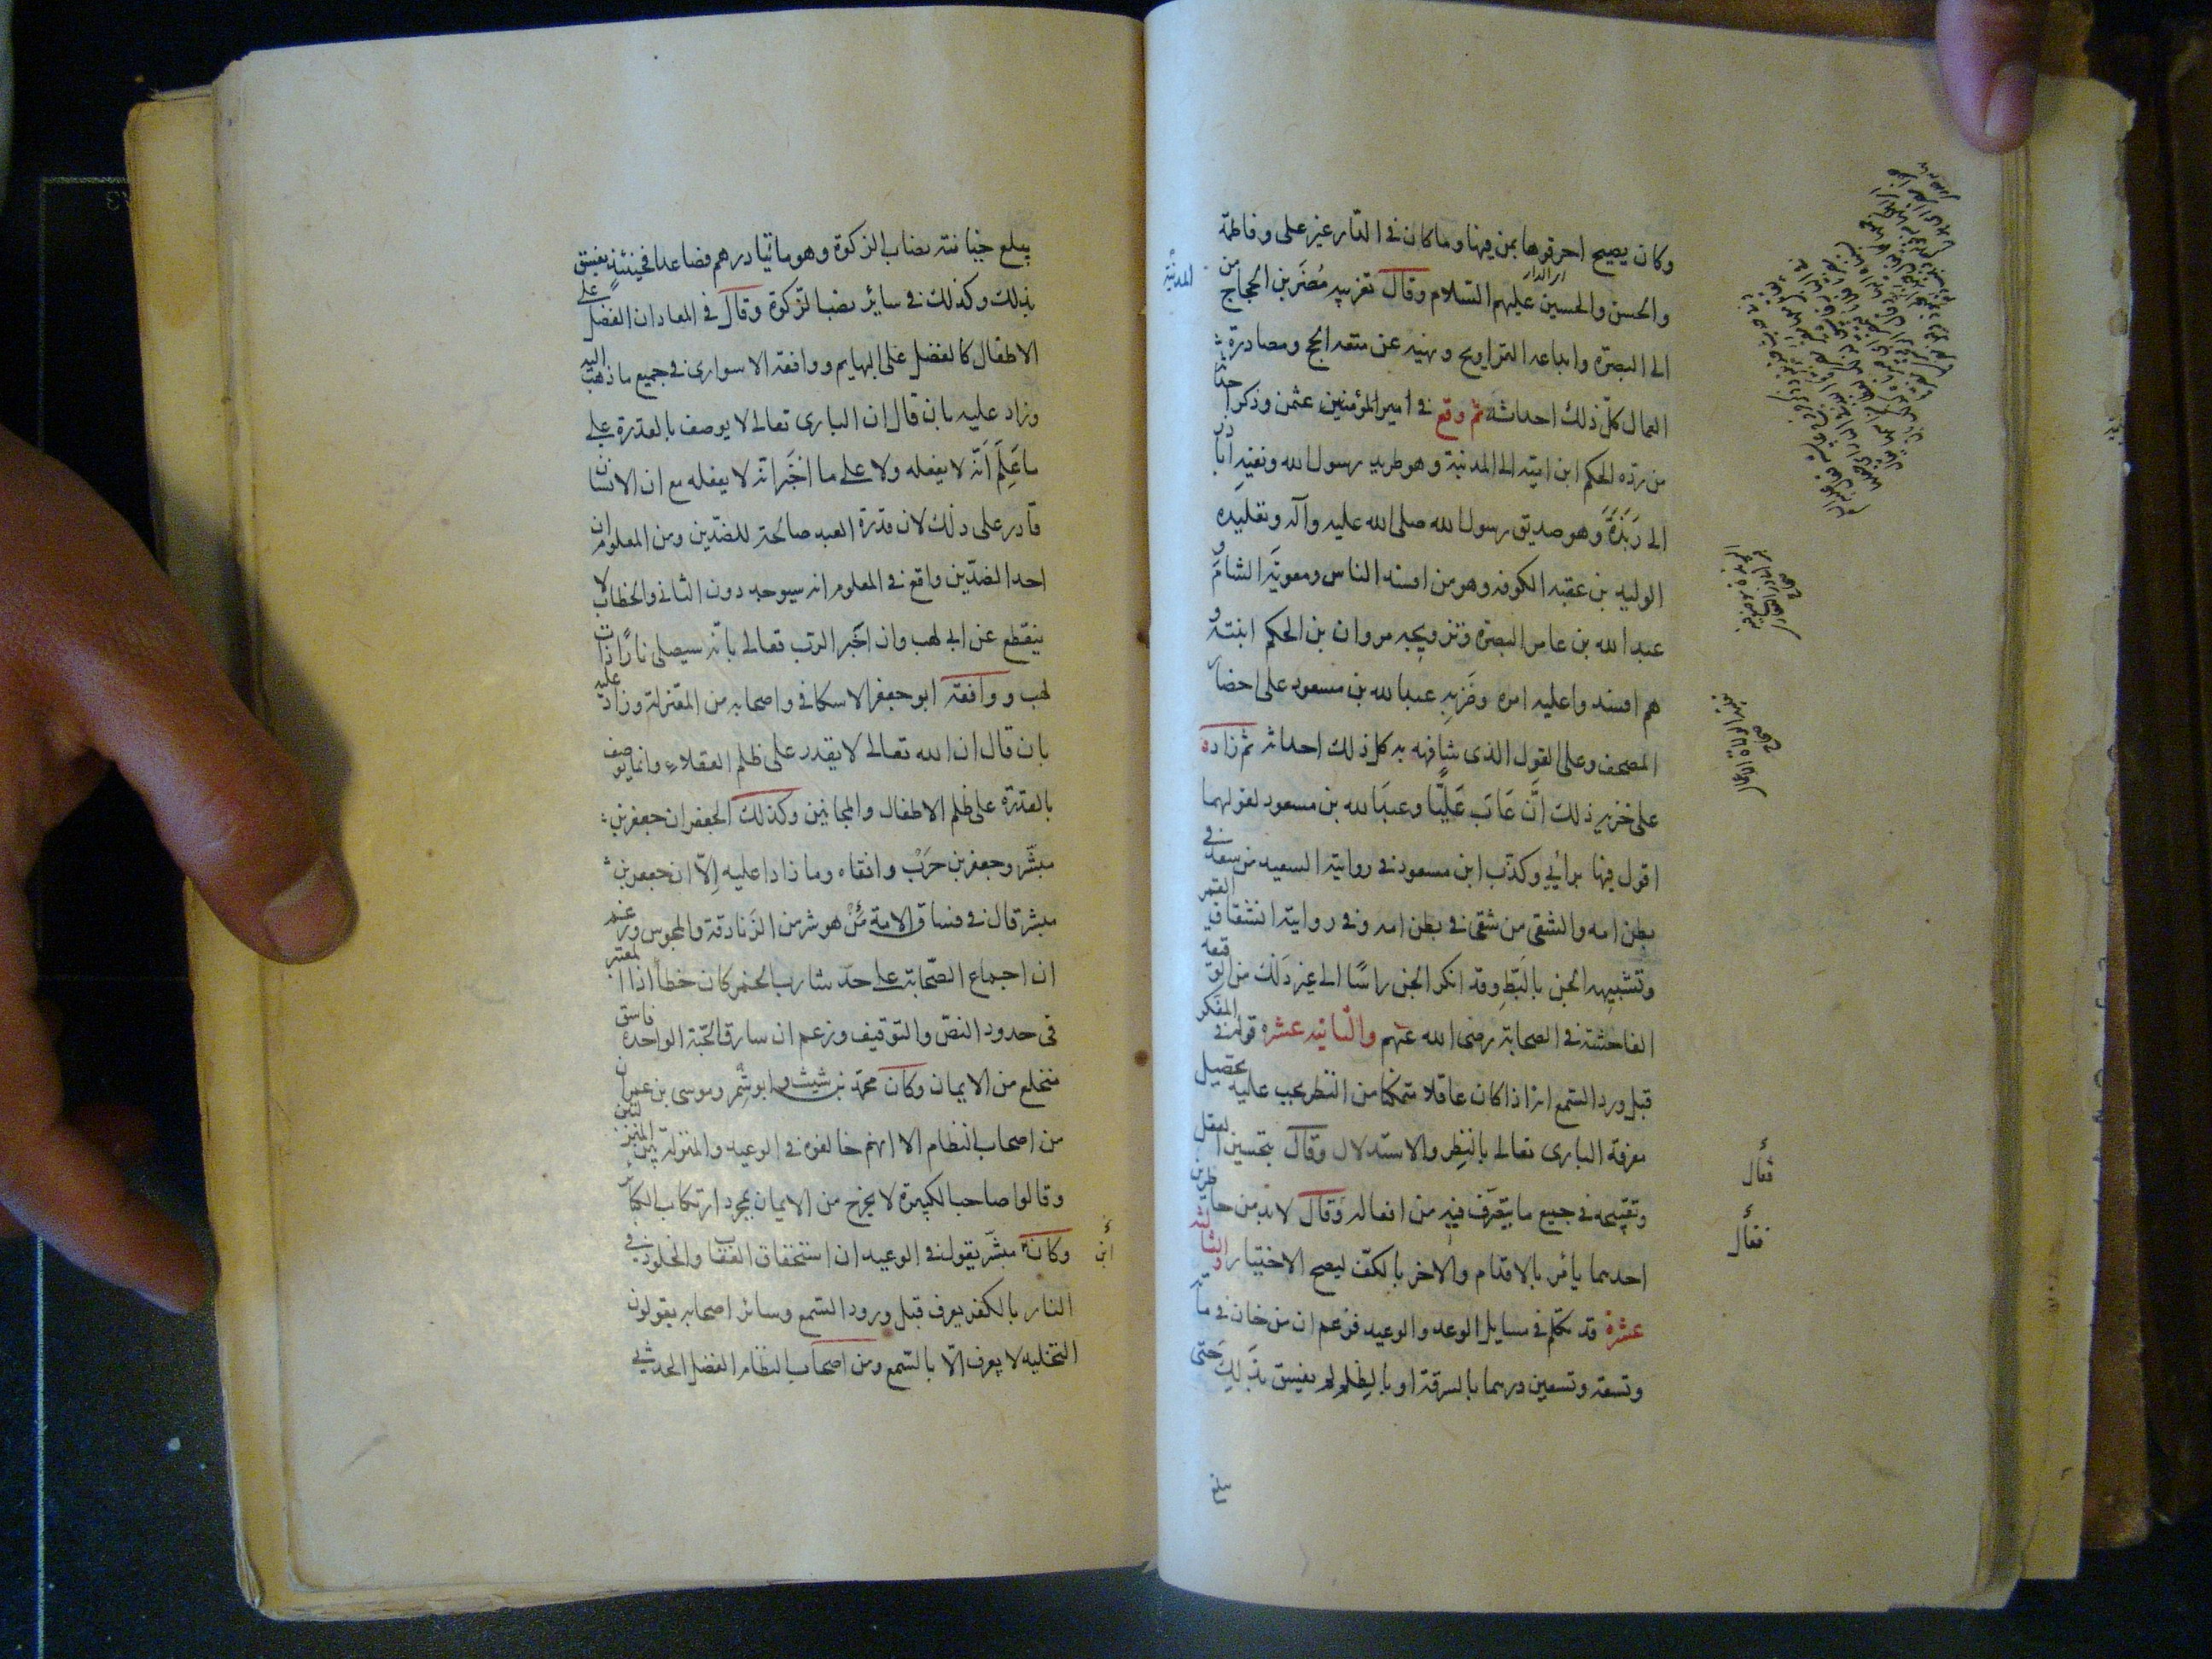 وكان يصيح احرقوها بمن فيها وما كان في الدار غير على وفاطمة
والحسن والحسين عليهم السّلام وقال تغريبه نصر بن الحجاج من المدينة
الى البصرة وابداعه التراويح ونهيه عن متعه الحج ومصادرة
العمال كلّ ذلك احداثه ثمّ وقع في امير المؤمنين عثمن وذكر احداثه
من ردّه الحكم ابن اميّه الى المدينة وهو طريد رسول الله ونفيه ابا ذر
الى رَبَذَة وهو صديق رسول الله صلى الله عليه وآله وتقليده
الوليد بن عقبه الكوفه وهو من افسد الناس ومعوية الشام و
عبد الله بن عامر البصرة وتزويجه مروان بن الحكم ابنته و
هم افسدوا عليه امره وضربه عبد الله بن مسعود على احضار
المصحف وعلى القول الذى شافهه به كل ذلك احداثه ثم زاده
على خزيه ذلك انَّ عَابَ عَلِيًّا وعبدَ الله بن مسعود لقولهما
اقول فيها برأيي وكذّب ابن مسعود في روايته السعيد من سعد في
بطن امه والشقى من شقى في بطن امه وفي روايته انشقاق القمر
وتشبيهه الجن بالبَطِّ وقد انكر الجن راسًا الى غير ذلك من الوقيعة
الفاحشة في الصحابة رضى الله عنهم والثانيه عشره قوله في المفكر
قبل ورد السّمع انه اذا كان عاقلا متمكنا من النظر يجب عليه تحصيل
معرفة البارى تعالى بالنظر والاستدلال وقال بتحسين العقل
وتقبيحه في جميع ما يتصرّف فيه من افعاله وقال لا بد من خاطرين
احدهما يأمر بالاقدام والاخر بالكفّ ليصح الاختيار والثالثه
عشرة قد تكلم في مسايل الوعد والوعيد فزعم ان من خان في مأته
وتسعة وتسعين درهما بالسرقة او بالظلم لم يفسق بذلك حتى
فعال
فعال
يبلغ خيانته نصاب الزكوة وهو ماتيا درهم فصاعدا فحينئذٍ يفسق
بذلك وكذلك في سايئر نصب الزكوة وقال في المعاد ان الفضل على
الاطفال كالفضل على البهايم ووافقه الاسوارى في جميع ما ذهب اليه
وزاد عليه بان قال ان البارى تعالى لا يوصف بالقدرة على
ما عَلِمَ اَنَّه لا يفعله ولا على ما اخبَر انه لا يفعله مع ان الانسان
قادر على ذلك لان قدرة العبد صالحة للضدّين ومن المعلوم ان
احد الضدّين واقع في المعلوم انه سيوجد دون الثانى والخطاب لا
ينقطع عن ابى لهب وان اخبر الرب تعالى بانّه سيصلى نارًا ذات
لهب ووافقه ابو جعفر الاسكافى واصحابه من المعتزلة وزاد عليه
بان قال ان الله تعالى لا يقدر على ظلم العقلاء وانما يوصف
بالقدرة على ظلم الاطفال والمجانين وكذلك الجعفران جعفر بن
مبشّر وجعفر بن حَرْب وافقاه وما زادا عليه اِلّا ان جعفر بن
مبشر قال في فساق الامة مَنْ هو شر من الزنادقة والمجوس وزعم
ان اجماع الصّحابة على حدّ شارب الخمر كان خطأ اذ المعتبر
فى حدود النصّ والتوقيف وزعم ان سارق الحَبّة الواحدة فاسق
منخلع من الايمان وكان محمّد بن شبيث وابو شمر وموسى بن عمران
من اصحاب النظام الا انهم خالفوه في الوعيد والمنزلة بين المنزلتين
وقالوا صاحب الكبيرة لا يخرج من الايمان بمجرد ارتكاب الكبائر
وكان ابن مبشّر يقول في الوعيد ان استحقاق العقاب والخلود في
النار بالكفر يعرف قبل ورود السّمع وسائر اصحابه يقولون
التخليد لا يعرف الّا بالسّمع ومن اصحاب النظام الفضل الحدثى